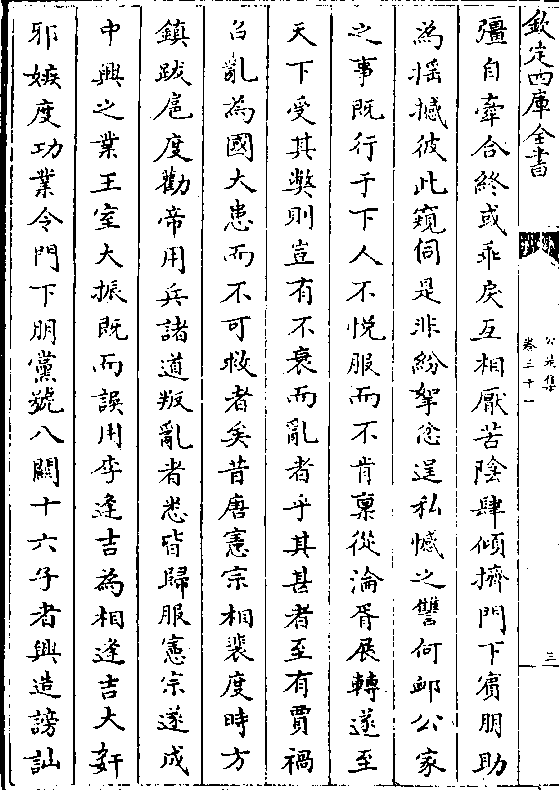 欽定四庫全書
公是集
卷三十一
三
彊自牽合終或乖戾互相厭苦陰肆傾擠門下賓朋助
為揺撼彼此窺伺是非紛拏忿逞私憾之讐何邮公家
之事既行于下人不悦服而不肯稟從淪胥展轉遂至
天下受其弊則豈有不衰而亂者乎其甚者至有賈禍
召亂為國大患而不可救者矣昔唐憲宗相裴度時方
鎮跋扈度勸帝用兵諸道叛亂者悉皆歸服憲宗遂成
中興之業王室大振既而誤用李逢吉為相逢吉大奸
邪嫉度功業令門下朋黨號八關十六子者興造謗訕